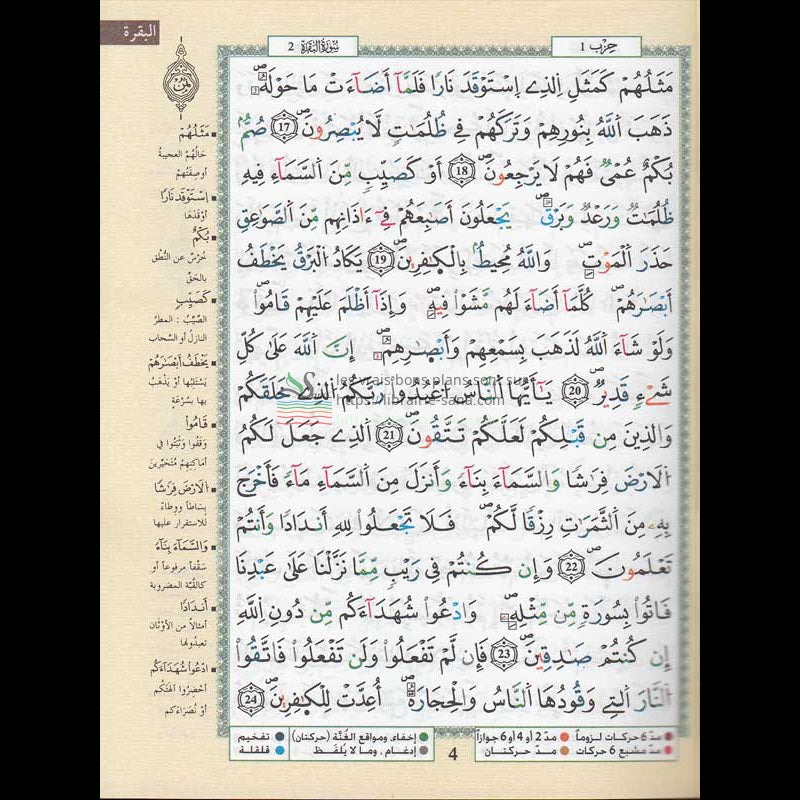 البقرة
سُورَةُ الْبَقَرَةِ 2
حِزْب 1
مَثَلُهُمْ كَمَثَلِ اِ۬لذِے اِ۪سْتَوْقَدَ نَاراٗ فَلَمَّآ أَضَآءَتْ مَا حَوْلَهُۥ
ذَهَبَ اَ۬للَّهُ بِنُورِهِمْ وَتَرَكَهُمْ فِے ظُلُمَٰتٖ لَّا يُبْصِرُونَۖ 17 صُمُّۢ
بُكْمٌ عُمْيٞ فَهُمْ لَا يَرْجِعُونَۖ 18 أَوْ كَصَيِّبٖ مِّنَ اَ۬لسَّمَآءِ فِيهِ
ظُلُمَٰتٞ وَرَعْدٞ وَبَرْقٞ يَجْعَلُونَ أَصَٰبِعَهُمْ فِےٓ ءَاذَانِهِم مِّنَ اَ۬لصَّوَٰعِقِ
حَذَرَ اَ۬لْمَوْتِۖ وَاللَّهُ مُحِيطُۢ بِالْكٰ۪فِرِينَۖ 19 يَكَادُ اُ۬لْبَرْقُ يَخْطَفُ
أَبْصَٰرَهُمْۖ كُلَّمَآ أَضَآءَ لَهُم مَّشَوْاْ فِيهِۖ وَإِذَآ أَظْلَمَ عَلَيْهِمْ قَامُواْۖ
وَلَوْ شَآءَ اَ۬للَّهُ لَذَهَبَ بِسَمْعِهِمْ وَأَبْصٰ۪رِهِمُۥٓۖ إِنَّ اَ۬للَّهَ عَلَىٰ كُلِّ
شَےْءٖ قَدِيرٞۖ 20 يَٰٓأَيُّهَا اَ۬لنَّاسُ اُ۟عْبُدُواْ رَبَّكُمُ اُ۬لذِے خَلَقَكُمْ
وَالذِينَ مِن قَبْلِكُمْ لَعَلَّكُمْ تَتَّقُونَۖ 21 اَ۬لذِے جَعَلَ لَكُمُ
اُ۬لَارْضَ فِرَٰشاٗ وَالسَّمَآءَ بِنَآءٗ وَأَنزَلَ مِنَ اَ۬لسَّمَآءِ مَآءٗ فَأَخْرَجَ
بِهِۦ مِنَ اَ۬لثَّمَرَٰتِ رِزْقاٗ لَّكُمْۖ فَلَا تَجْعَلُواْ لِلهِ أَندَاداٗ وَأَنتُمْ
تَعْلَمُونَۖ 22 وَإِن كُنتُمْ فِے رَيْبٖ مِّمَّا نَزَّلْنَا عَلَىٰ عَبْدِنَا
فَاتُواْ بِسُورَةٖ مِّن مِّثْلِهِۦ وَادْعُواْ شُهَدَآءَكُم مِّن دُونِ اِ۬للَّهِ
إِن كُنتُمْ صَٰدِقِينَۖ 23 فَإِن لَّمْ تَفْعَلُواْ وَلَن تَفْعَلُواْ فَاتَّقُواْ
اُ۬لنَّارَ اَ۬لتِے وَقُودُهَا اَ۬لنَّاسُ وَالْحِجَارَةُ أُعِدَّتْ لِلْكٰ۪فِرِينَۖ 24
les vrais bons plans sont sur
https://librairie-sana.com
مَثَلُهُمْ
حَالُهُم العجيبةُ
أو صِفَتُهم
اِسْتَوْقَدَ نَاراً
أوْقَدَهَا
بُكْمٌ
خُرْسٌ عن النُّطْقِ
بالحَقِّ
كَصَيِّبٍ
الصَّيِّبُ : المطرُ
النازلُ أو السَّحاب
يَخْطَفُ أَبْصَارَهُمْ
يَسْتَلِبُها أو يَذْهَبُ
بها بسُرْعَةٍ
قَامُواْ
وَقَفُوا وَثَبَتُوا في
أماكِنِهم مُتَحَيِّرينَ
اَلَارْضَ فِرَاشاً
بِسَاطاً ووِطاءً
للاستقرار عليها
وَالسَّمَاءَ بِنَاءً
سَقْفاً مرفوعاً أو
كالقُبَّة المضروبة
أَندَاداً
أمثالاً من الأوْثان
تعبدُونها
ادْعُوا شُهَدَاءَكُم
أحْضِروا آلهتَكم
أوْ نُصَرَاءكم
مدّ 6 حركات لزوماً مدّ 2 أو 4 أو 6 جوازاً
مدّ مشبع 6 حركات مدّ حركتان
إخفاء، ومواقع الغُنَّة (حركتان) تفخيم
إدغام، وما لا يُلفَظ قلقلة
4